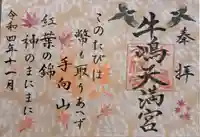 奉拝
牛嶋天満宮
このたびは
幣も取りあへず
手向山
紅葉の錦
神のまにまに
令和四年十一月